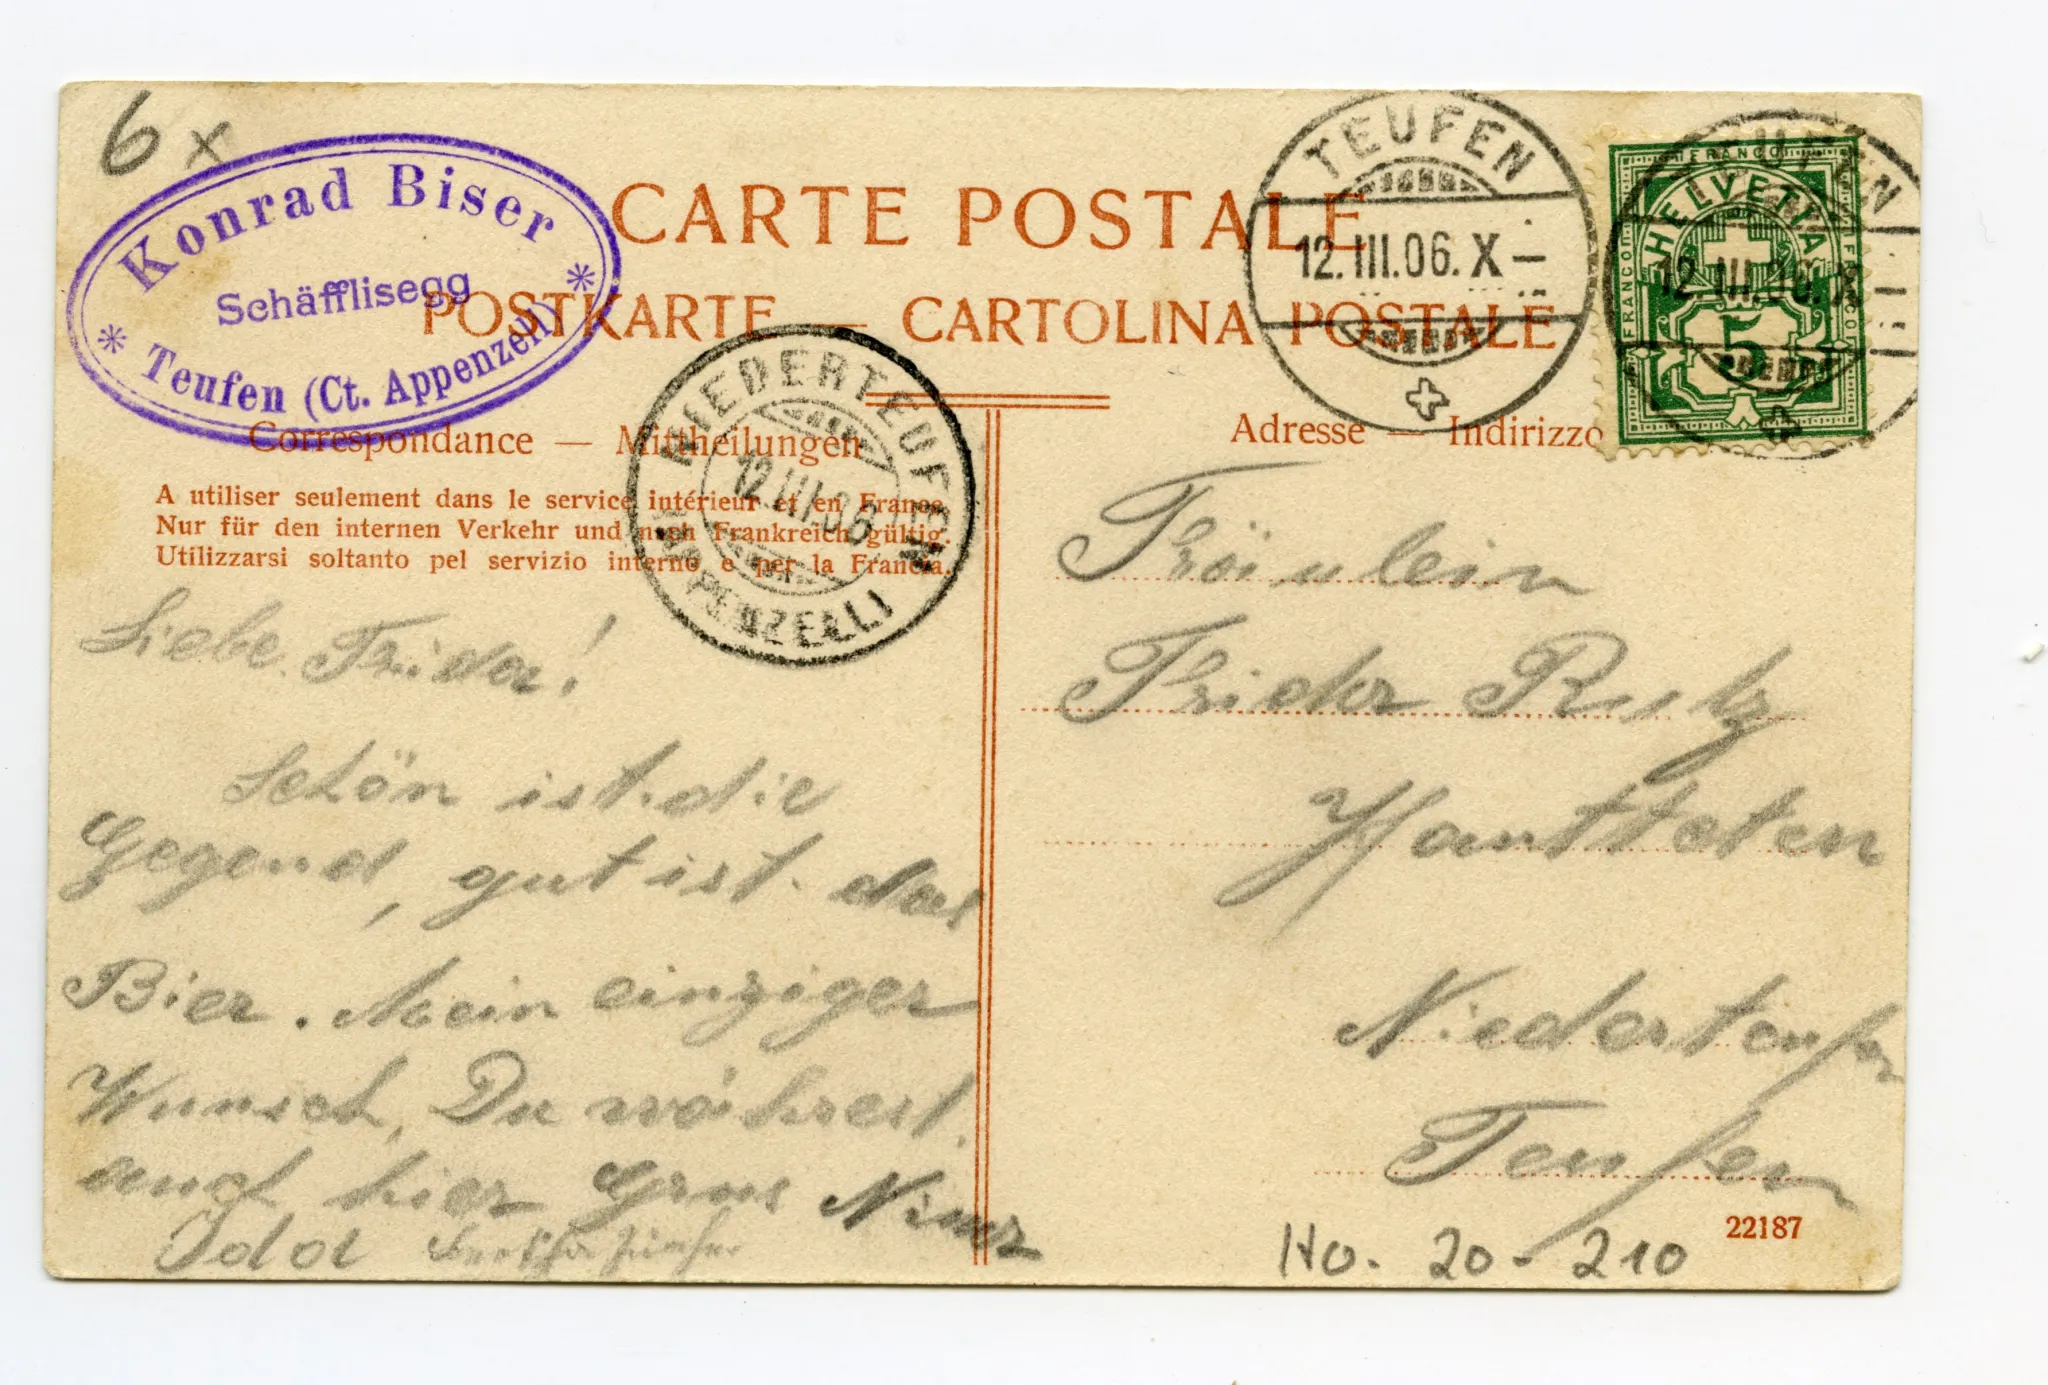 6 x
Konrad Biser
Schäfflisegg
* Teufen (Ct. Appenzell) *
CARTE POSTALE
POSTKARTE — CARTOLINA POSTALE
TEUFEN
12.III.06.X–
FRANCO
HELVETIA
FRANCO
FRANCO
5
12.III.06.X–
NIEDERTEUFEN
12.III.06
(APPENZELL)
Correspondance — Mittheilungen
A utiliser seulement dans le service intérieur et en France.
Nur für den internen Verkehr und nach Frankreich gültig.
Utilizzarsi soltanto pel servizio interno e per la Francia.
Liebe Frida!
Schön ist die
Gegend, gut ist das
Bier. Mein einziger
Wunsch, Du währest
auch hier Grus
Ida
Adresse — Indirizzo
Fröiulein
Frida Rutz
Niederteufen
Teufen
22187
Ho. 20 - 210